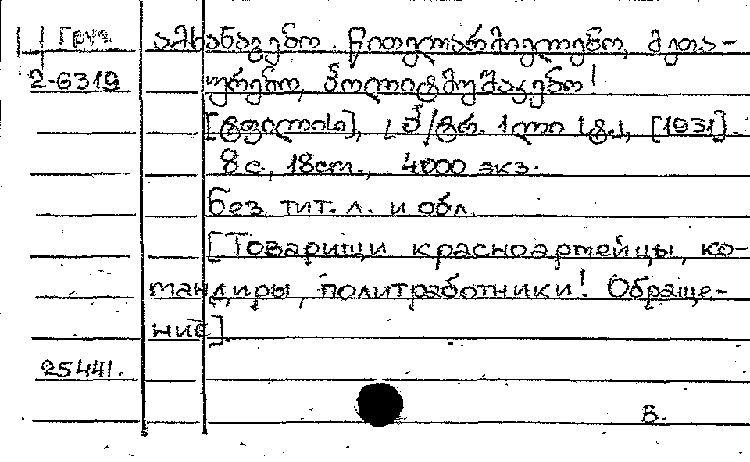 Груз. ამხანაგებო წითელარმიელებო, მეთა-
2-6319 ურებო, პოლიტმუშაკებო!
[ტფილისი], სტ. 1ლი [1931].
8 с., 18 cm., 4000 экз.
Без тит. л. и обл.
[Товарищи красноармейцы, ко-
мандиры, политработники! Обраще-
ние].
25441.
в.